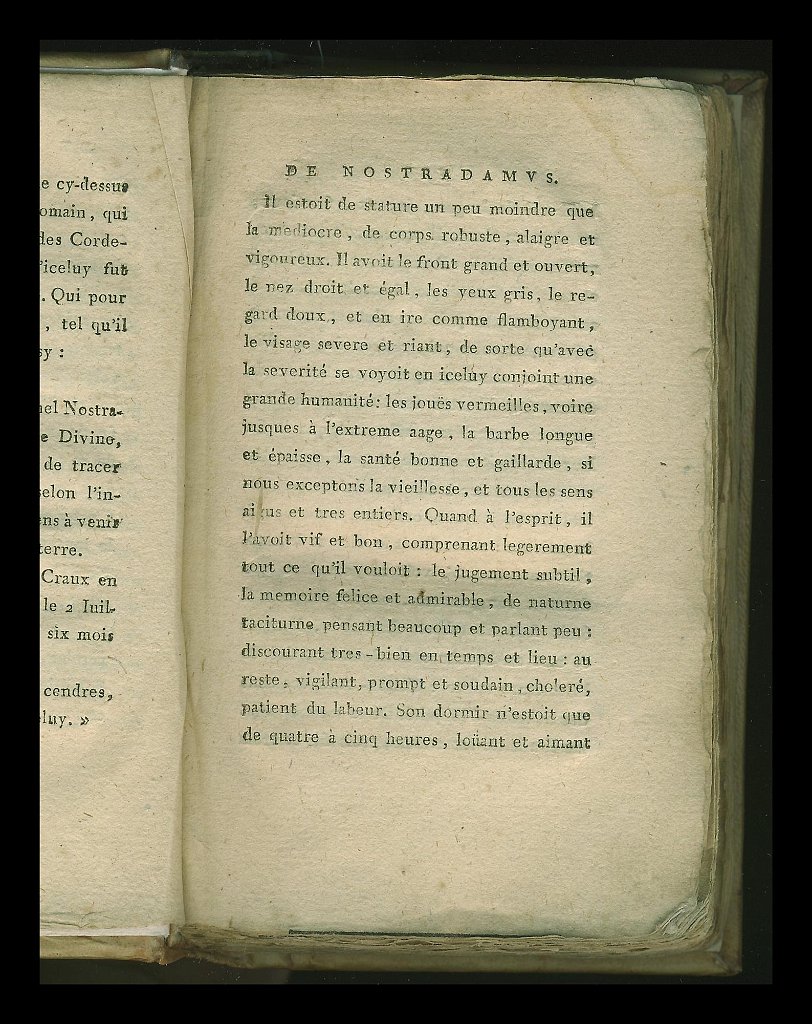 e cy-dessus
omain, qui
des Corde-
'iceluy fut
. Qui pour
, tel qu'il
sy :
nel Nostra-
e Divine,
de tracer
selon l'in-
ens à venir
terre.
Craux en
le 2 Iuil-
six mois
cendres,
luy. »
DE NOSTRADAMVS.
Il estoit de stature un peu moindre que
la mediocre, de corps robuste, alaigre et
vigoureux. Il avoit le front grand et ouvert,
le nez droit et égal, les yeux gris, le re-
gard doux, et en ire comme flamboyant,
le visage severe et riant, de sorte qu'avec
la severité se voyoit en iceluy conjoint une
grande humanité: les jouës vermeilles, voire
jusques à l'extreme aage, la barbe longue
et épaisse, la santé bonne et gaillarde, si
nous exceptons la vieillesse, et tous les sens
aigus et tres entiers. Quand à l'esprit, il
l'avoit vif et bon, comprenant legerement
tout ce qu'il vouloit : le jugement subtil,
la memoire felice et admirable, de naturne
taciturne pensant beaucoup et parlant peu :
discourant tres-bien en temps et lieu : au
reste, vigilant, prompt et soudain, choleré,
patient du labeur. Son dormir n'estoit que
de quatre à cinq heures, loüant et aimant